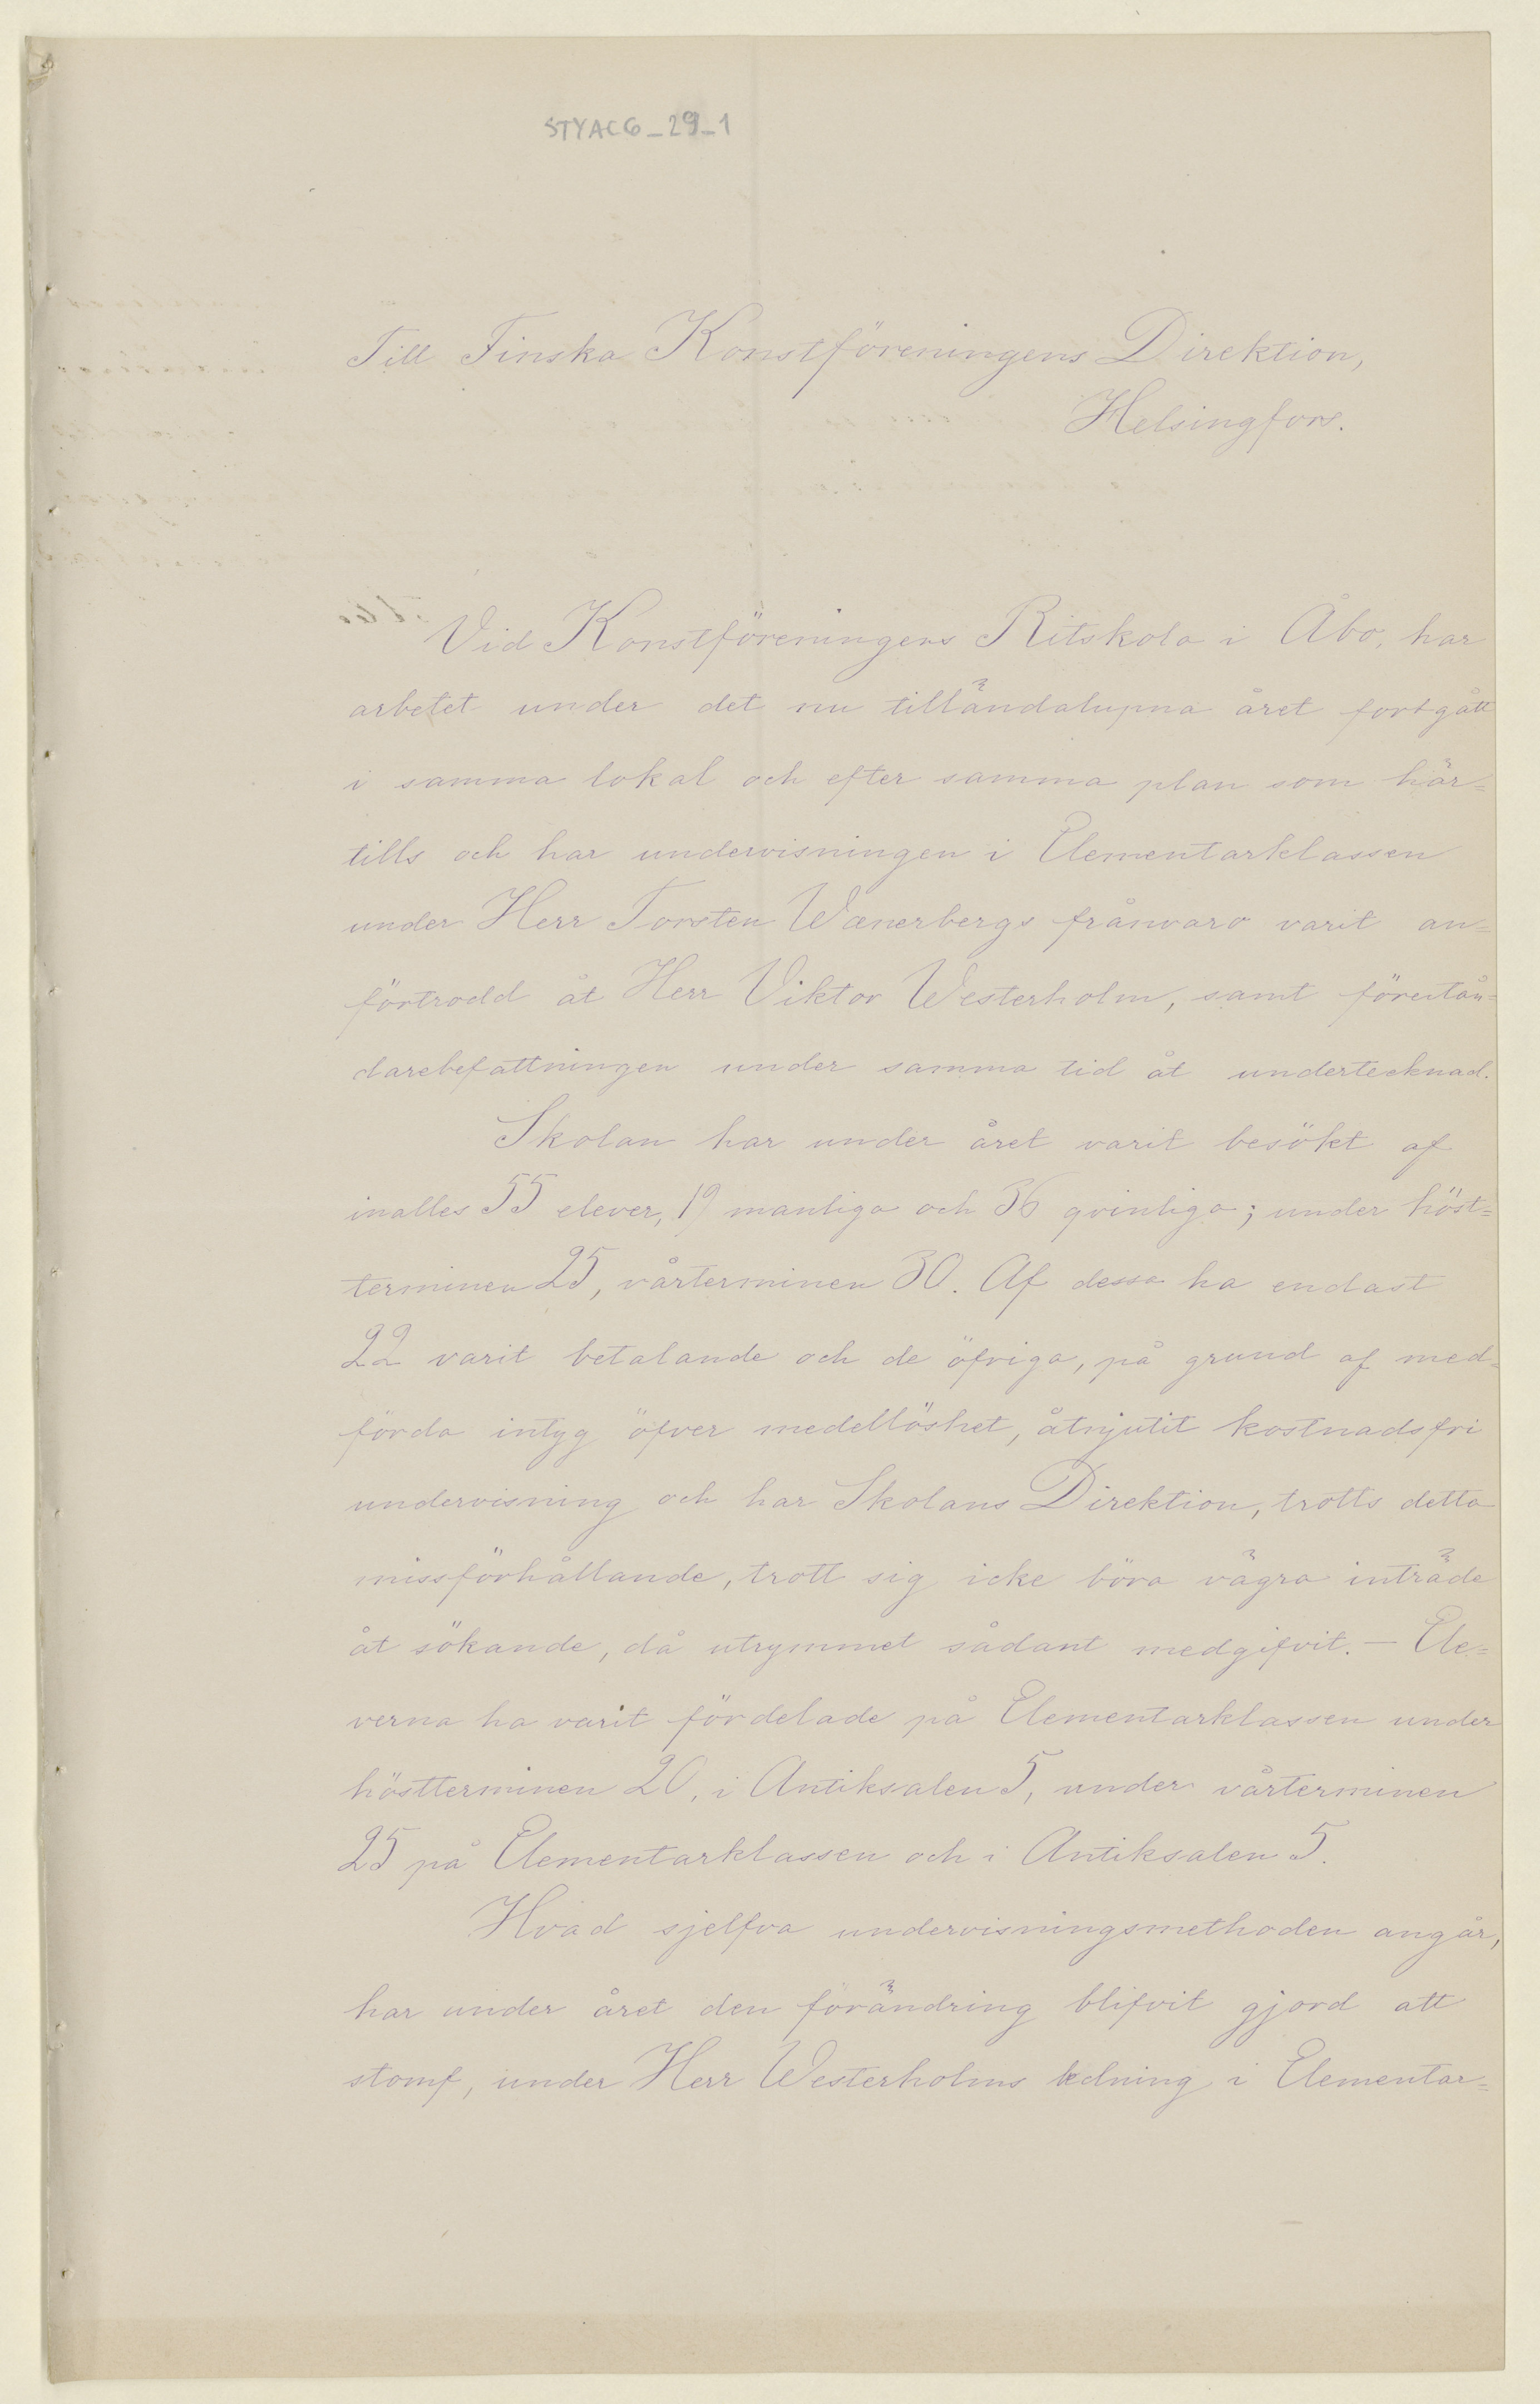 STYAC6_29_1
Till Finska Konstföreningens Direktion,
Helsingfors.
Vid Konstföreningens Ritskola i Åbo, har
arbetet under det nu tilländalupna året fortgått
i samma lokal och efter samma plan som här=
tills och har undervisningen i Elementarklassen
under Herr Torsten Wænerbergs frånvaro varit an=
förtrodd åt Herr Viktor Westerholm, samt förestån=
darebefattningen under samma tid åt undertecknad.
Skolan har under året varit besökt af
inalles 55 elever, 19 manliga och 36 qvinliga; under höst=
terminen 25, vårterminen 30. Af dessa ha endast
22 varit betalande och de öfriga, på grund af med=
förda intyg öfver medellöshet, åtnjutit kostnadsfri
undervisning och har Skolans Direktion, trotts detta
missförhållande, trott sig icke böra vägra inträde
åt sökande, då utrymmet sådant medgifvit. — Ele=
verna ha varit fördelade på Elementarklassen under
höstterminen 20, i Antiksalen 5, under vårterminen
25 på Elementarklassen och i Antiksalen 5.
Hvad sjelfva undervisningsmethoden angår,
har under året den förändring blifvit gjord att
stomf, under Herr Westerholms ledning i Elementar=